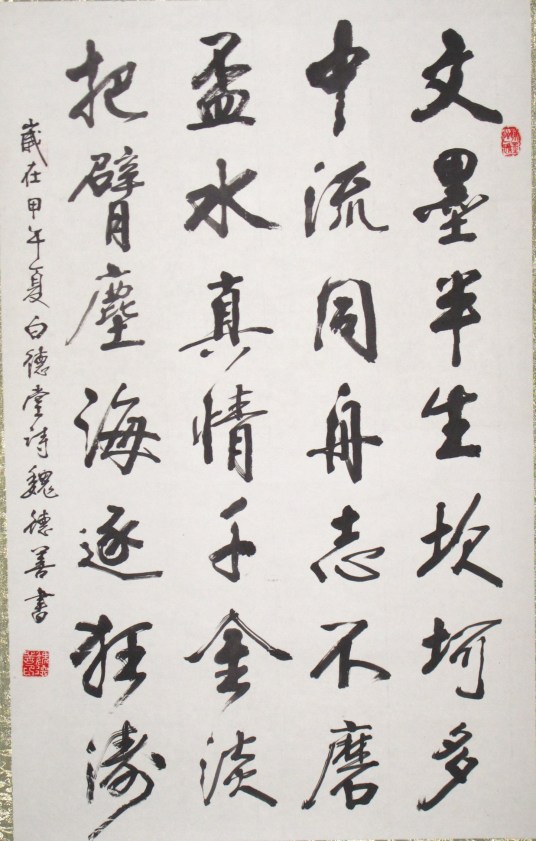 文墨半生坎坷多
中流同舟志不磨
盃水真情千金淡
把臂塵海逐狂濤
歲在甲午夏白德堂詩魏德善書